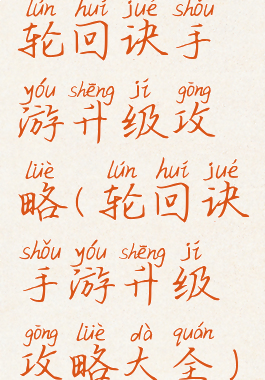 lún huí jué shǒu
轮回诀手
yóu shēng jí gōng
游升级攻
lüè lún huí jué
略(轮回诀
shǒu yóu shēng jí
手游升级
gōng lüè dà quán
攻略大全)